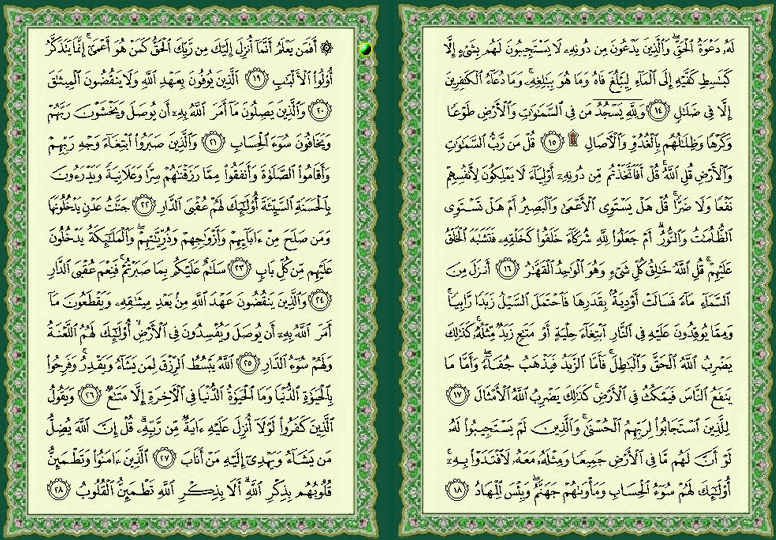 لَهُۥ دَعْوَةُ ٱلْحَقِّ ۖ وَٱلَّذِينَ يَدْعُونَ مِن دُونِهِۦ لَا يَسْتَجِيبُونَ لَهُم بِشَىْءٍ إِلَّا
كَبَـٰسِطِ كَفَّيْهِ إِلَى ٱلْمَآءِ لِيَبْلُغَ فَاهُ وَمَا هُوَ بِبَـٰلِغِهِۦ ۚ وَمَا دُعَآءُ ٱلْكَـٰفِرِينَ
إِلَّا فِى ضَلَـٰلٍ ١٤ وَلِلَّهِ يَسْجُدُ مَن فِى ٱلسَّمَـٰوَٰتِ وَٱلْأَرْضِ طَوْعًا
وَكَرْهًا وَظِلَـٰلُهُم بِٱلْغُدُوِّ وَٱلْـَٔاصَالِ ۩ ١٥ قُلْ مَن رَّبُّ ٱلسَّمَـٰوَٰتِ
وَٱلْأَرْضِ قُلِ ٱللَّهُ ۚ قُلْ أَفَٱتَّخَذْتُم مِّن دُونِهِۦٓ أَوْلِيَآءَ لَا يَمْلِكُونَ لِأَنفُسِهِمْ
نَفْعًا وَلَا ضَرًّا ۚ قُلْ هَلْ يَسْتَوِى ٱلْأَعْمَىٰ وَٱلْبَصِيرُ أَمْ هَلْ تَسْتَوِى
ٱلظُّلُمَـٰتُ وَٱلنُّورُ ۗ أَمْ جَعَلُوا۟ لِلَّهِ شُرَكَآءَ خَلَقُوا۟ كَخَلْقِهِۦ فَتَشَـٰبَهَ ٱلْخَلْقُ
عَلَيْهِمْ ۚ قُلِ ٱللَّهُ خَـٰلِقُ كُلِّ شَىْءٍ وَهُوَ ٱلْوَٰحِدُ ٱلْقَهَّـٰرُ ١٦ أَنزَلَ مِنَ
ٱلسَّمَآءِ مَآءً فَسَالَتْ أَوْدِيَةٌۢ بِقَدَرِهَا فَٱحْتَمَلَ ٱلسَّيْلُ زَبَدًا رَّابِيًا ۚ
وَمِمَّا يُوقِدُونَ عَلَيْهِ فِى ٱلنَّارِ ٱبْتِغَآءَ حِلْيَةٍ أَوْ مَتَـٰعٍ زَبَدٌ مِّثْلُهُۥ ۚ كَذَٰلِكَ
يَضْرِبُ ٱللَّهُ ٱلْحَقَّ وَٱلْبَـٰطِلَ ۚ فَأَمَّا ٱلزَّبَدُ فَيَذْهَبُ جُفَآءً ۖ وَأَمَّا مَا
يَنفَعُ ٱلنَّاسَ فَيَمْكُثُ فِى ٱلْأَرْضِ ۚ كَذَٰلِكَ يَضْرِبُ ٱللَّهُ ٱلْأَمْثَالَ ١٧
لِلَّذِينَ ٱسْتَجَابُوا۟ لِرَبِّهِمُ ٱلْحُسْنَىٰ ۚ وَٱلَّذِينَ لَمْ يَسْتَجِيبُوا۟ لَهُۥ
لَوْ أَنَّ لَهُم مَّا فِى ٱلْأَرْضِ جَمِيعًا وَمِثْلَهُۥ مَعَهُۥ لَٱفْتَدَوْا۟ بِهِۦٓ ۚ
أُو۟لَـٰٓئِكَ لَهُمْ سُوٓءُ ٱلْحِسَابِ وَمَأْوَىٰهُمْ جَهَنَّمُ ۖ وَبِئْسَ ٱلْمِهَادُ ١٨
۞ أَفَمَن يَعْلَمُ أَنَّمَآ أُنزِلَ إِلَيْكَ مِن رَّبِّكَ ٱلْحَقُّ كَمَنْ هُوَ أَعْمَىٰٓ ۚ إِنَّمَا يَتَذَكَّرُ
أُو۟لُوا۟ ٱلْأَلْبَـٰبِ ١٩ ٱلَّذِينَ يُوفُونَ بِعَهْدِ ٱللَّهِ وَلَا يَنقُضُونَ ٱلْمِيثَـٰقَ
٢٠ وَٱلَّذِينَ يَصِلُونَ مَآ أَمَرَ ٱللَّهُ بِهِۦٓ أَن يُوصَلَ وَيَخْشَوْنَ رَبَّهُمْ
وَيَخَافُونَ سُوٓءَ ٱلْحِسَابِ ٢١ وَٱلَّذِينَ صَبَرُوا۟ ٱبْتِغَآءَ وَجْهِ رَبِّهِمْ
وَأَقَامُوا۟ ٱلصَّلَوٰةَ وَأَنفَقُوا۟ مِمَّا رَزَقْنَـٰهُمْ سِرًّا وَعَلَانِيَةً وَيَدْرَءُونَ
بِٱلْحَسَنَةِ ٱلسَّيِّئَةَ أُو۟لَـٰٓئِكَ لَهُمْ عُقْبَى ٱلدَّارِ ٢٢ جَنَّـٰتُ عَدْنٍ يَدْخُلُونَهَا
وَمَن صَلَحَ مِنْ ءَابَآئِهِمْ وَأَزْوَٰجِهِمْ وَذُرِّيَّـٰتِهِمْ ۖ وَٱلْمَلَـٰٓئِكَةُ يَدْخُلُونَ
عَلَيْهِم مِّن كُلِّ بَابٍ ٢٣ سَلَـٰمٌ عَلَيْكُم بِمَا صَبَرْتُمْ ۚ فَنِعْمَ عُقْبَى ٱلدَّارِ
٢٤ وَٱلَّذِينَ يَنقُضُونَ عَهْدَ ٱللَّهِ مِنۢ بَعْدِ مِيثَـٰقِهِۦ وَيَقْطَعُونَ مَآ
أَمَرَ ٱللَّهُ بِهِۦٓ أَن يُوصَلَ وَيُفْسِدُونَ فِى ٱلْأَرْضِ ۙ أُو۟لَـٰٓئِكَ لَهُمُ ٱللَّعْنَةُ
وَلَهُمْ سُوٓءُ ٱلدَّارِ ٢٥ ٱللَّهُ يَبْسُطُ ٱلرِّزْقَ لِمَن يَشَآءُ وَيَقْدِرُ ۚ وَفَرِحُوا۟
بِٱلْحَيَوٰةِ ٱلدُّنْيَا وَمَا ٱلْحَيَوٰةُ ٱلدُّنْيَا فِى ٱلْـَٔاخِرَةِ إِلَّا مَتَـٰعٌ ٢٦ وَيَقُولُ
ٱلَّذِينَ كَفَرُوا۟ لَوْلَآ أُنزِلَ عَلَيْهِ ءَايَةٌ مِّن رَّبِّهِۦ ۗ قُلْ إِنَّ ٱللَّهَ يُضِلُّ
مَن يَشَآءُ وَيَهْدِىٓ إِلَيْهِ مَنْ أَنَابَ ٢٧ ٱلَّذِينَ ءَامَنُوا۟ وَتَطْمَئِنُّ
قُلُوبُهُم بِذِكْرِ ٱللَّهِ ۗ أَلَا بِذِكْرِ ٱللَّهِ تَطْمَئِنُّ ٱلْقُلُوبُ ٢٨